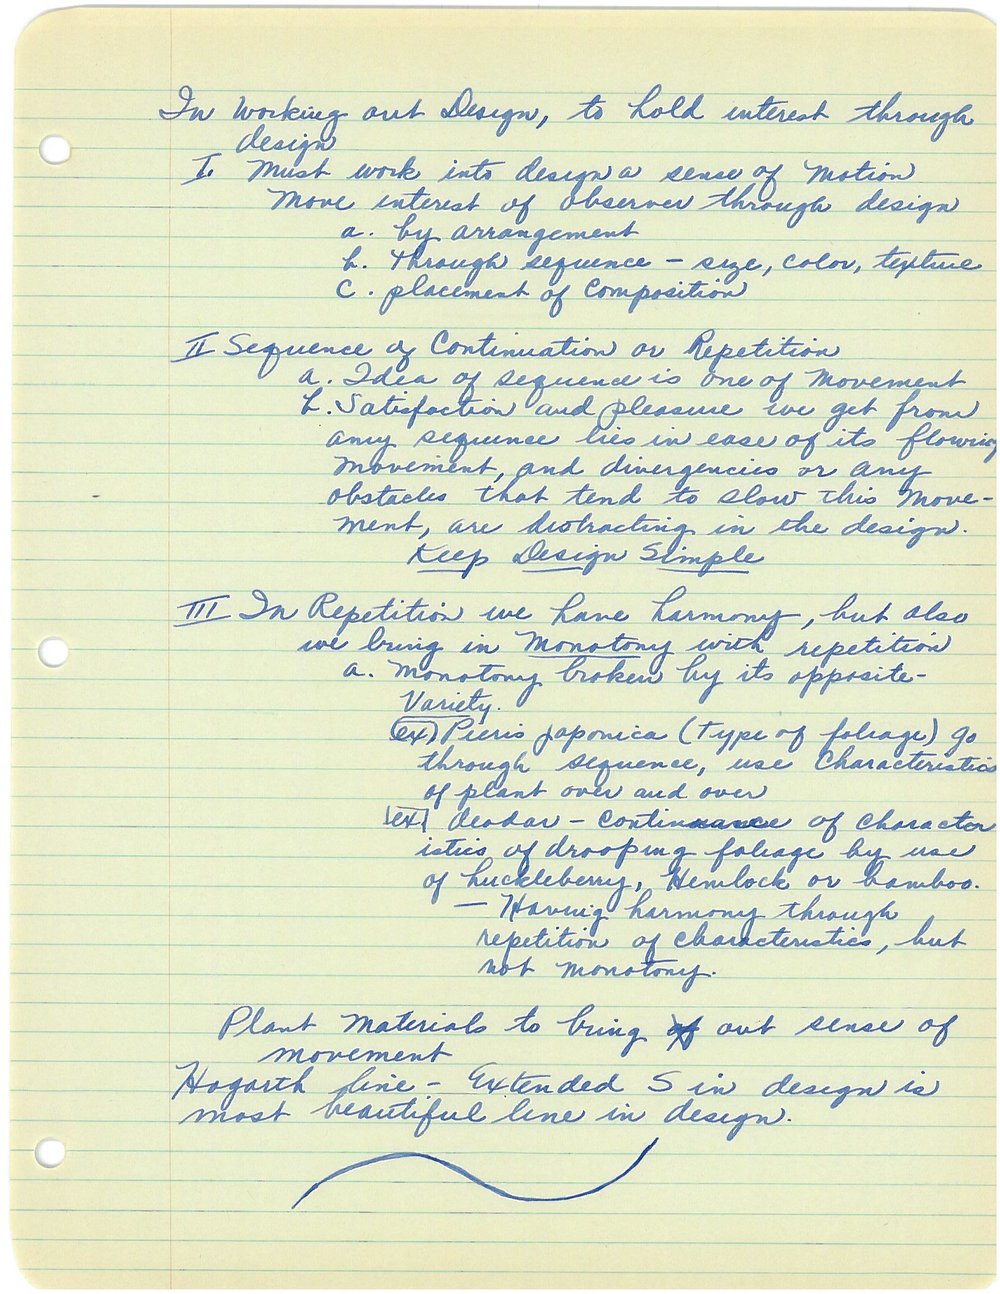 In Working out Design, to hold interest through
design
I. Must work into design a sense of Motion
Move interest of observer through design
a. by arrangement
b. through sequence – size, color, texture
c. placement of Composition
II Sequence of Continuation or Repetition
a. Idea of sequence is one of Movement
b. Satisfaction and pleasure we get from
any sequence lies in ease of its flowing
movement, and divergencies or any
obstacles that tend to slow this Move-
ment, are distracting in the design.
Keep Design Simple
III In Repetition we have harmony, but also
we bring in Monotony with repetition
a. Monotony broken by its opposite-
Variety.
(ex) Pieris japonica (type of foliage) go
through sequence, use Characteristics
of plant over and over
[ex] deodar – continuance of character
istics of drooping foliage by use
of huckleberry, Hemlock or bamboo.
– Having harmony through
repetition of characteristics, but
not monotony.
Plant Materials to bring out sense of
movement
Hogarth line – Extended S in design is
most beautiful line in design.